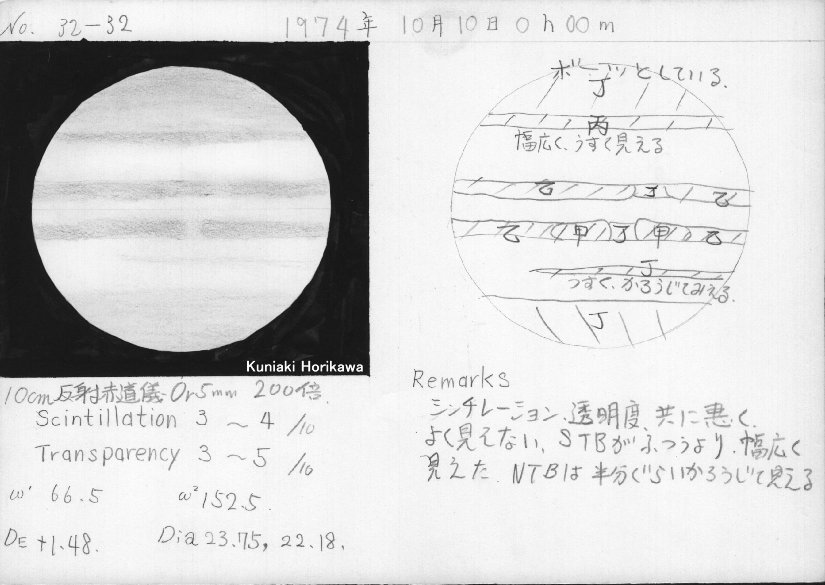 No. 32-32
1974年 10月10日 0h 00m
ボーッとしている.
丁
丙
幅広く、うすく見える
乙 丁 乙
乙 甲 丁 甲 乙
丁
うすく、かろうじてみえる.
丁
Kuniaki Horikawa
10cm反射赤道儀 Or5mm 200倍.
Scintillation 3 ~ 4 /10
Transparency 3 ~ 5 /10
ω' 66.5 ω² 152.5.
DE +1.48. Dia 23.75, 22.18.
Remarks
シンチレーション、透明度、共に悪く、
よく見えない、STBがふつうより、幅広く
見えた. NTBは半分ぐらいかろうじて見える